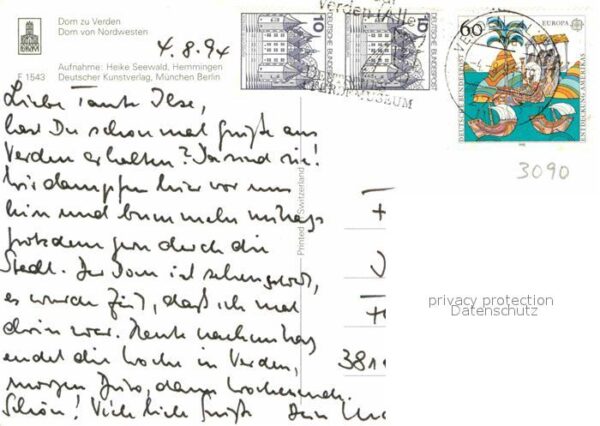 Dom zu Verden
Dom von Nordwesten
4.8.94
Aufnahme: Heike Seewald, Hemmingen
F 1543 Deutscher Kunstverlag, München Berlin
Liebe Tante Ilse,
hast Du schon mal Grüße aus
Verden erhalten? Da sind sie!
Wir dampfen hier vor uns
hin und bummeln mittags
trotzdem gern durch die
Stadt. Der Dom ist sehenswert,
es wurde Zeit, daß ich mal
drin war. Heute nachmittag
endet die Woche in Verden,
morgen Büro, dann Wochenende.
Schön! Viele liebe Grüße Dein
Printed in Switzerland
10 DEUTSCHE BUNDESPOST
10 DEUTSCHE BUNDESPOST
Verden (Aller)
MUSEUM
60
EUROPA
DEUTSCHE BUNDESPOST
ENTDECKUNG AMERIKAS
3090
381
privacy protection
Datenschutz